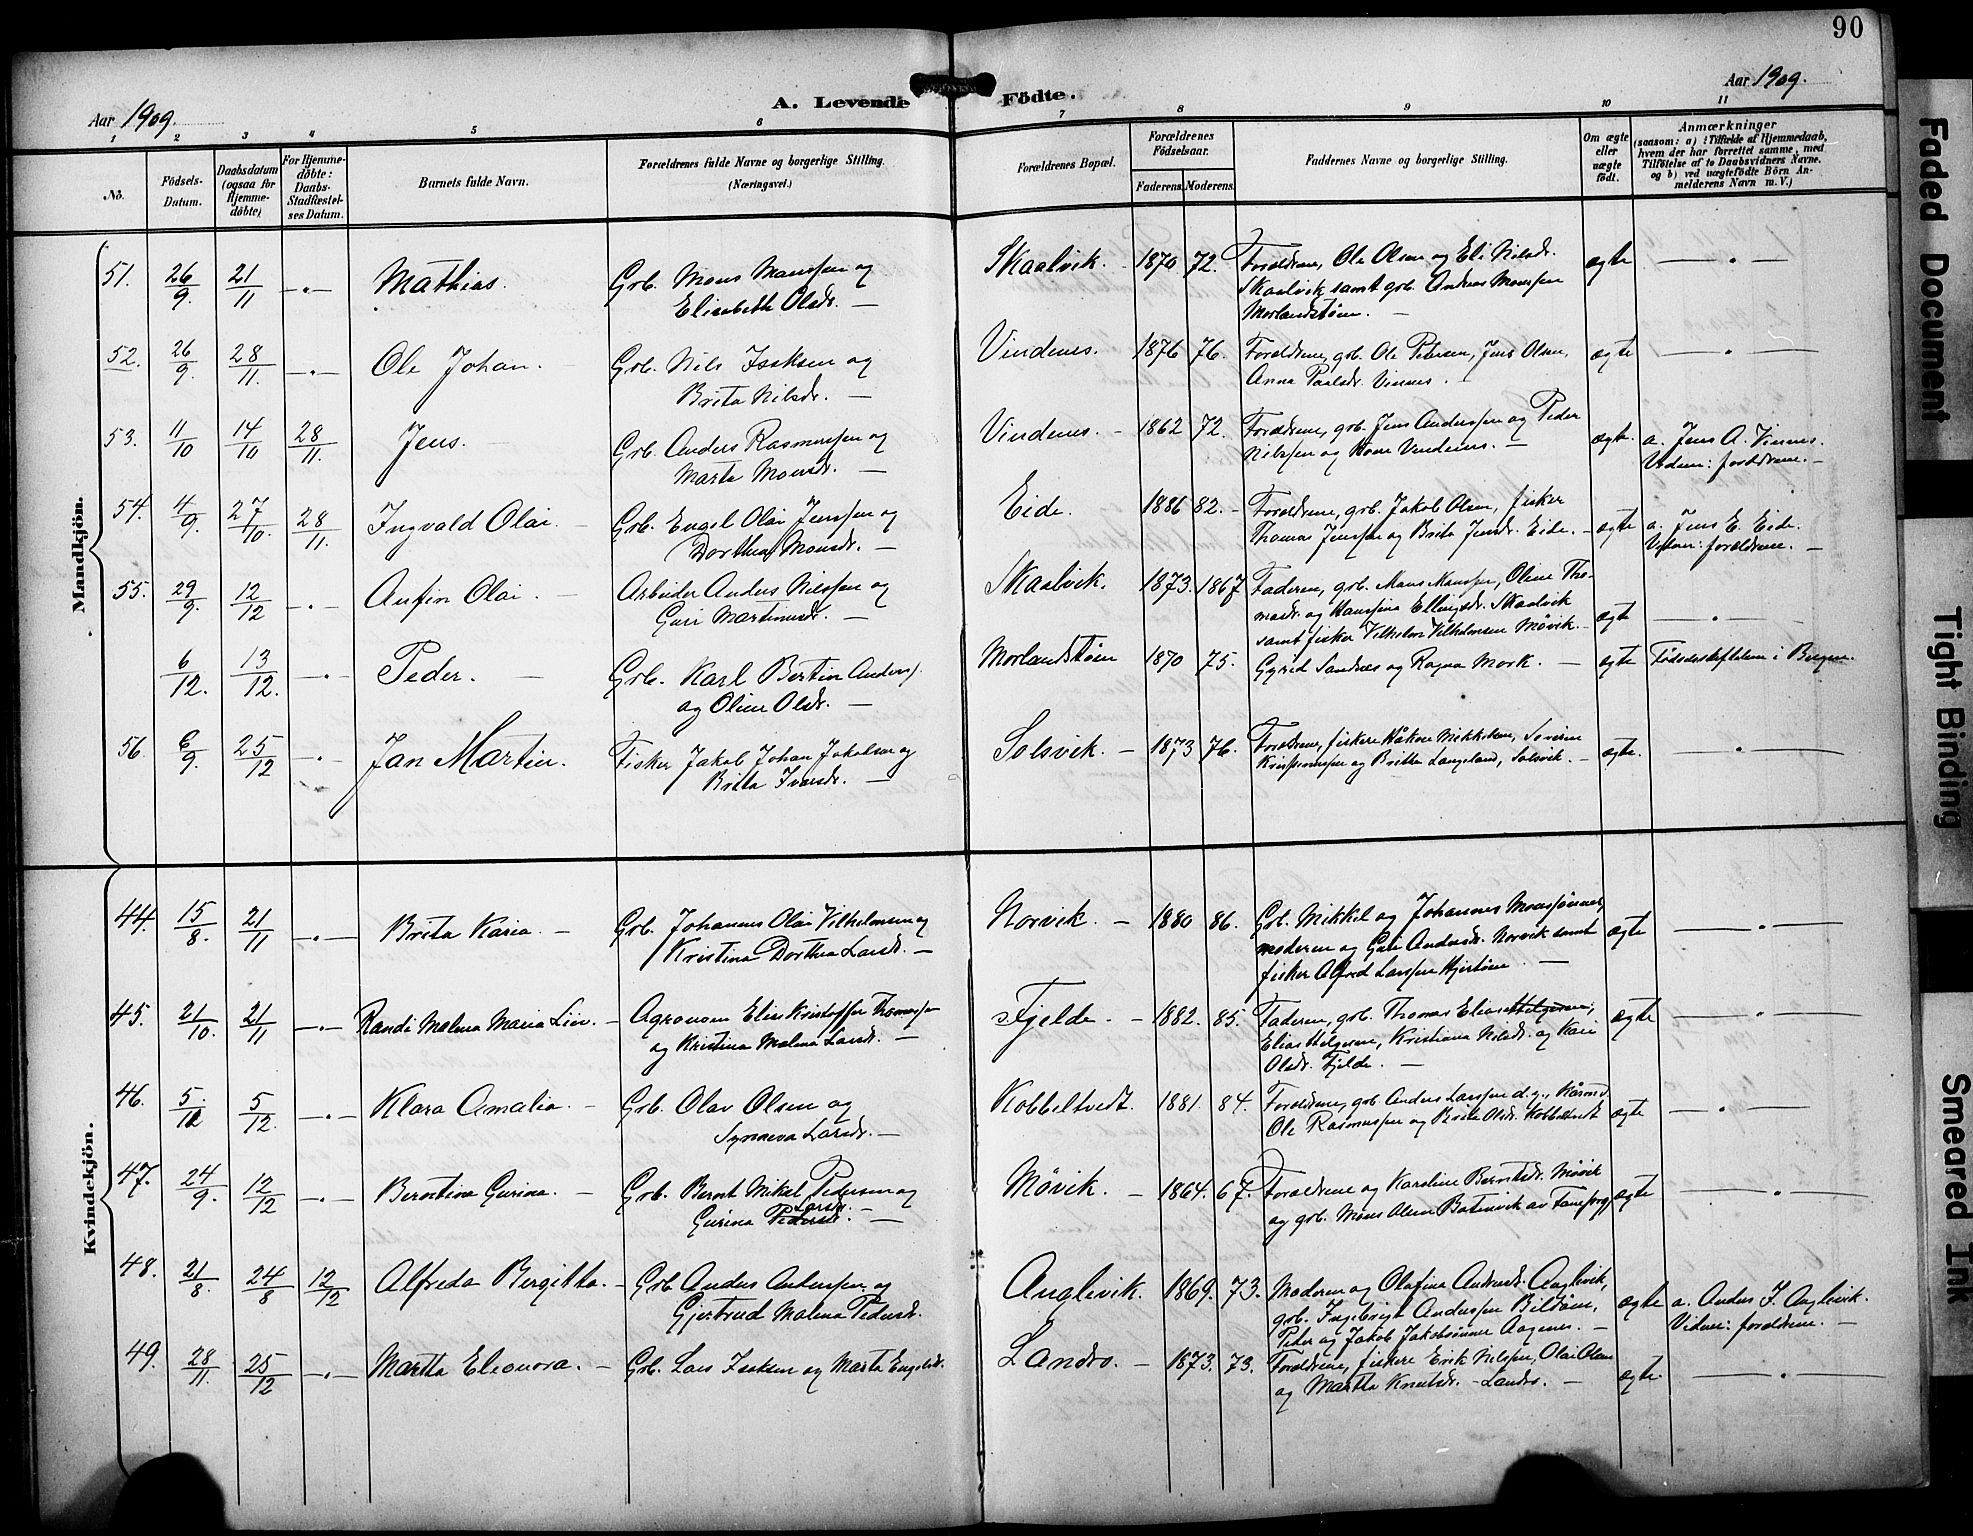 90
Aar 1909.
A. Levende Födte.
Aar 1909.
1 2 3 4 5 6 7 8 9 10 11
No.
Födsels-Datum.
Daabsdatum (ogsaa for Hjemmedöbte)
For Hjemmedöbte: Daabs-Stadfæstelses Datum.
Barnets fulde Navn.
Forældrenes fulde Navne og borgerlige Stilling.
(Næringsvei.)
Forældrenes Bopæl.
Forældrenes Födselsaar.
Faderens. Moderens.
Faddernes Navne og borgerlige Stilling.
Om ægte eller uægte födt.
Anmærkninger
(saasom: a) i Tilfælde af Hjemmedaab,
hvem der har forrettet samme, med
Tilföielse af to Daabsvidners Navne.
og b) ved uægtefödte Börn An-
melderens Navn m. V.)
Mandkjön.
51. 26/9. 21/11 Mathias. Grb. Mons Monssen og
Elisabeth Olsdr. —
Skaalvik. 1870 72. Forældrene, Ole Olsen og Eli Nilsdr.
Skaalvik samt grb. Andreas Monssen
Morlandstöen. ægte
52. 26/9. 28/11. Ole Johan. Grb. Nils Isaksen og
Brita Nilsdr. —
Vindenes. 1876 76. Forældrene, grb. Ole Petersen, Jens Olsen,
Anna Paalsdr. Vinnes. ægte
53. 11/10 14/10 28/11. Jens. Grb. Anders Rasmussen og
Marta Monsdr. —
Vindenes. 1862 72. Forældrene, grb. Jens Anderssen og Peder
Nilssen og Kone Vindenes. — ægte. a. Jens A. Vinnes.
Vidner: forældrene. —
54. 4/9. 27/10. 28/11. Ingvald Olai. Grb. Engel Olai Jenssen og
Dorthea Monsdr. —
Eide. 1886 82. Forældrene, grb. Jakob Olsen, fisker
Thomas Jenssen og Brita Jensdr. Eide. — ægte a. Jens E. Eide.
Vidner: forældrene. —
55. 29/9. 12/12 Anfin Olai. Arbeider Anders Nilssen og
Guri Martinusdr. —
Skaalvik. 1873. 1867 Faderen, grb. Mons Monssen, Oline Tho-
masdr. og Hansina Ellingsdr. Skaalvik
samt fisker Vilhelm Vilhelmsen Møvik. — ægte
6/12. 13/12. Peder. Grb. Karl Bertin Anderss.
og Oline Olsdr. —
Morlandstöen 1870 75. Gyrid Sandnes og Ragna Mork. — ægte Fødselsstiftelsen i Bergen.
56. 6/9. 25/12 Jan Martin. Fisker Jakob Johan Jakobsen og
Brita Ivarsdr. —
Solsvik. 1873 76. Forældrene, fiskere Håkon Mikkelsen, Severin
og Britta Langeland, Solsvik. — ægte.
Kvindekjön.
44. 15/8. 21/11 Brita Karia. Grb. Johannes Olai Vilhelmsen og
Kristina Dorthea Larsdr. —
Norvik. 1880 86. Grb. Mikkel og Johannes Monssønner,
moderen og Guri Andersdr. Norvik samt
fisker Alfred Larssen Hjertöen. — ægte
45. 21/10. 21/11 Randi Malena Maria Liv. Agronom Elias Kristoffer Thomassen
og Kristina Malena Larsdr. —
Fjelde. 1882. 85. Faderen, grb. Thomas Elias Helgesen,
Elias Helgesen, Kristiana Nilsdr. og Kari
Olsdr. Fjelde. — ægte
46. 5/12 5/12. Klara Amalia. Grb. Olav Olsen og
Synneva Larsdr. —
Kobbeltvedt. 1881. 84. Forældrene, grb. Anders Larssen d.y.,
Ole Rasmussen og Brita Olsdr. Kobbeltvedt ægte
47. 24/9. 12/12 Berntina Gurina. Grb. Bernt Mikal Pedersen og
Larsdr.
Gurina Pedersdr. —
Møvik. 1864. 67. Forældrene og Karoline Berntsdr. Møvik
og grb. Mons Olsen av Fane sogn ægte
48. 21/8. 24/8 12/12 Alfreda Bergitta. Grb. Anders Anderssen og
Gjertrud Malena Pedersdr.
Anglevik. 1869. 73. Moderen og Olafina Andersdr. Anglevik,
grb. Ingebrigt Anderssen Bildöen,
Peder og Jakob Jakobsønner Aagenes. — ægte a. Anders J. Anglevik.
Vidner: forældrene. —
49. 28/11. 25/12 Martha Eleonora. Grb. Lars Isaksen og Marta Engelsdr.
Landro. 1873. 73. Forældrene, fiskere Erik Nilssen, Olai Olsen
og Martha Knutsdr. Landro. — ægte.
Faded Document
Tight Binding
Smeared Ink